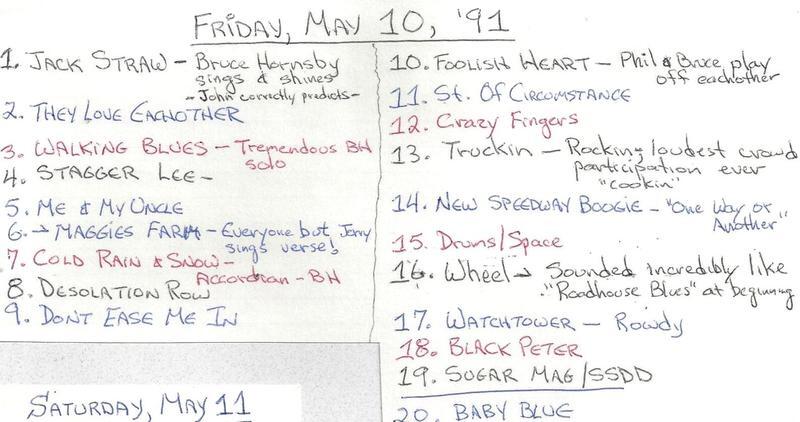 FRIDAY, MAY 10, '91
1. JACK STRAW - Bruce Hornsby
sings & shines
- John correctly predicts -
2. THEY LOVE EACHOTHER
3. WALKING BLUES - Tremendous BH
solo
4. STAGGER LEE -
5. ME & MY UNCLE
6. → MAGGIES FARM - Everyone but Jerry
sings verse!
7. COLD RAIN & SNOW -
Accordian - BH
8. DESOLATION ROW
9. DONT EASE ME IN
10. FOOLISH HEART - Phil & Bruce play
off eachother
11. St. OF CIRCUMSTANCE
12. Crazy Fingers
13. Truckin - Rocking, loudest crowd
participation ever
"cookin"
14. NEW SPEEDWAY BOOGIE - "One Way or
Another"
15. Drums/Space
16. Wheel → Sounded incredibly like
"Roadhouse Blues" at beginning
17. WATCHTOWER - Rowdy
18. BLACK PETER
19. SUGAR MAG/SSDD
20. BABY BLUE
SATURDAY, MAY 11